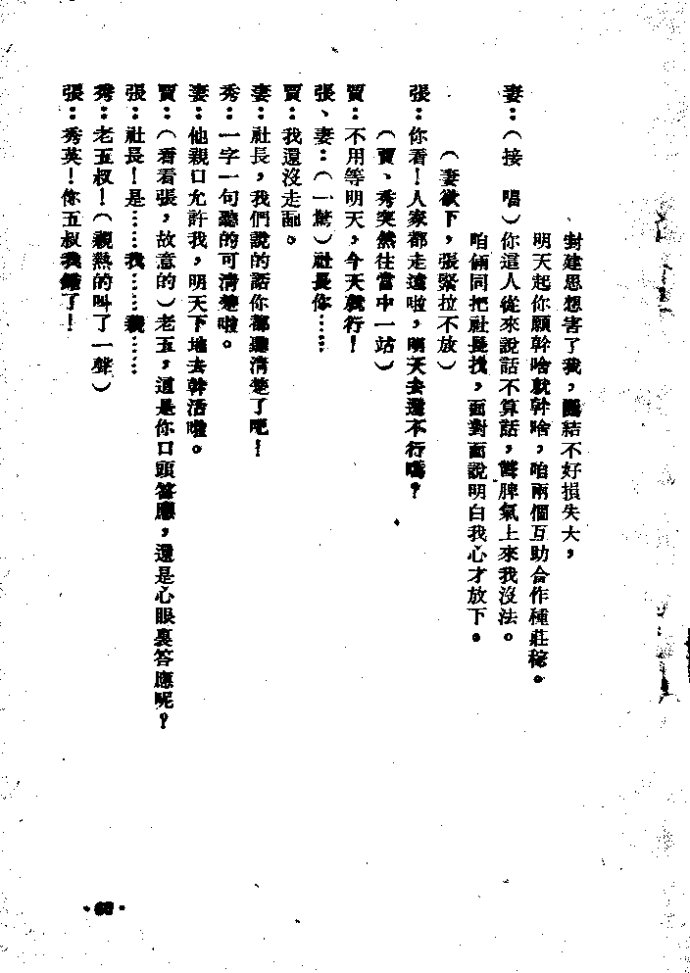 封建思想害了我，團結不好損失大，
明天起你願幹啥就幹啥，咱兩個互助合作種莊稼。
妻：（接　唱）你這人從來說話不算話，舊脾氣上來我沒法。
咱倆同把社長找，面對面說明白我心才放下。
（妻欲下，張緊拉不放）
張：你看！人家都走遠啦，明天去還不行嗎？
（賈、秀突然往當中一站）
賈：不用等明天，今天就行！
張、妻：（一驚）社長你……
賈：我還沒走哩。
妻：社長，我們說的話你都聽清楚了吧！
秀：一字一句聽的可清楚啦。
妻：他親口允許我，明天下地去幹活啦。
賈：（看看張，故意的）老五，這是你口頭答應，還是心眼裏答應呢？
張：社長！是……我……我……
秀：老五叔！（親熱的叫了一聲）
張：秀英！你五叔我錯了！